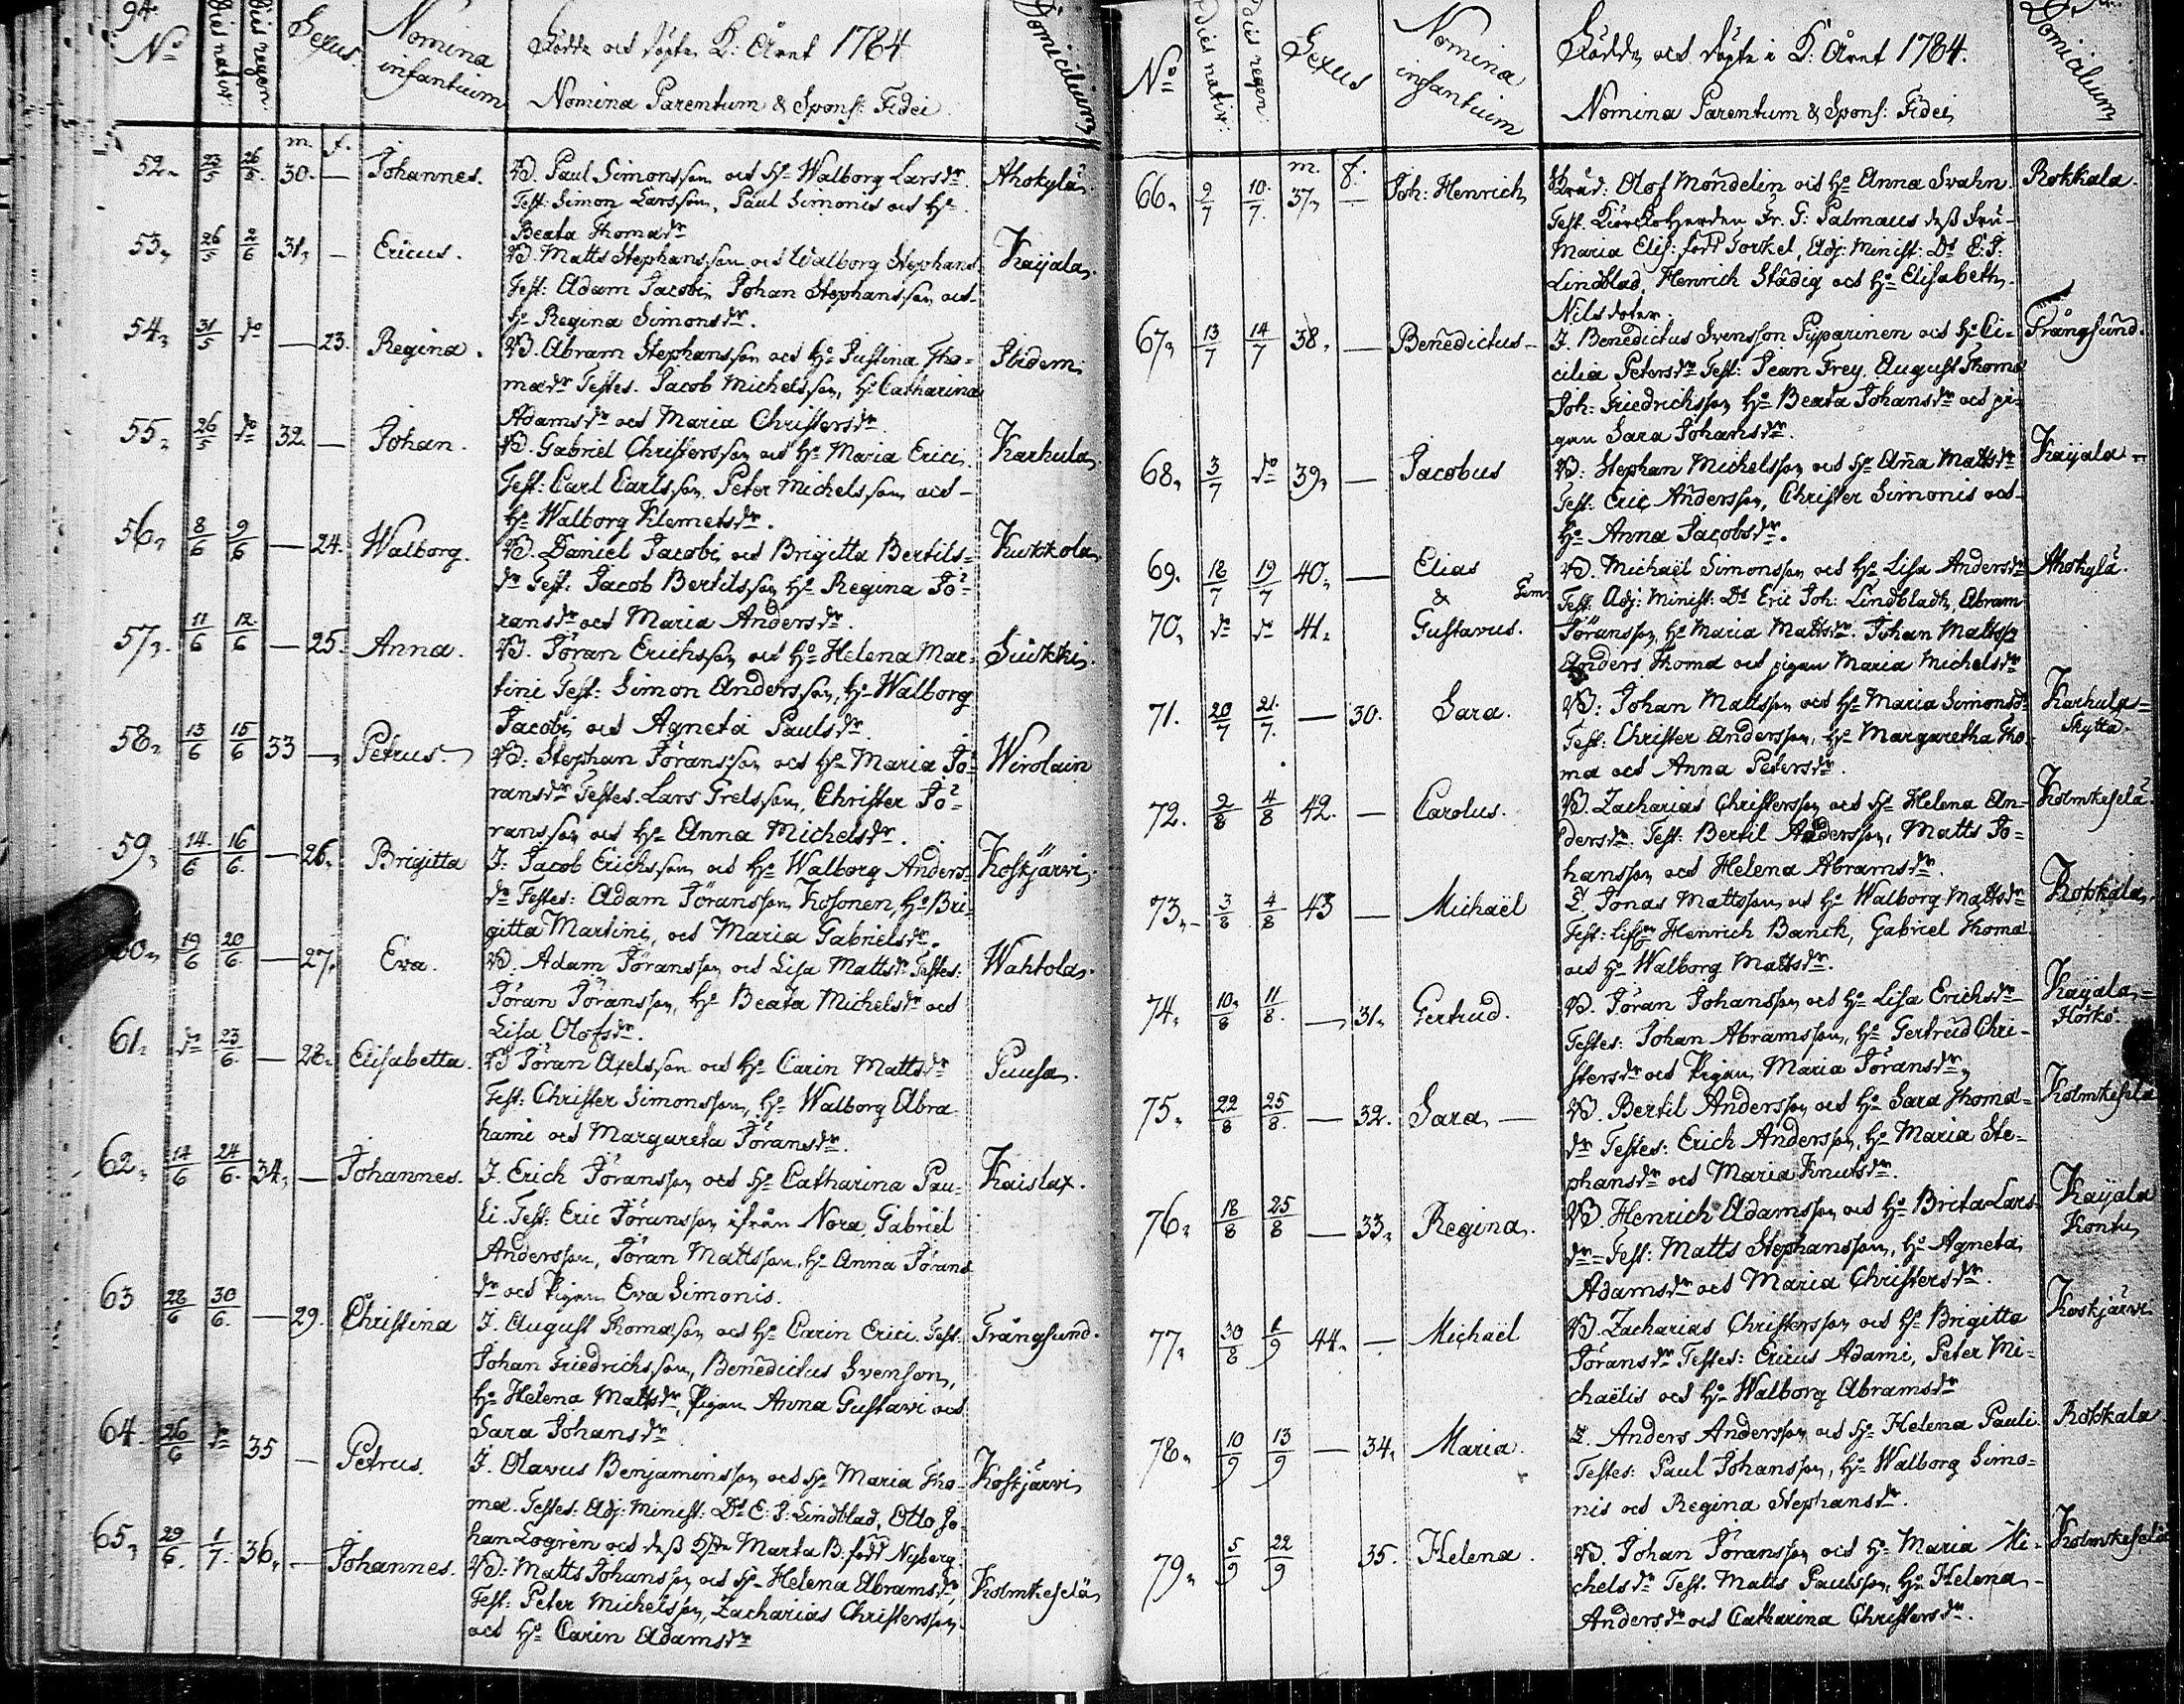 94.
No Dies nativ: Dies regen: Sexus. Nomina infantium Födde och döpte K: Året 1784 Domicilium
Nomina Parentum & Spons: Fidei
m. f.
52. 23/5 26/5. 30. — Johannes. B. Paul Simonsson och H: Walborg Larsdr. Ahokylä
Test: Simon Larsson, Paul Simonis och H:
Beata Thomædr
53. 26/5 2/6 31. — Ericus. B. Matts Stephansson och Walborg Stephans Kaijala.
Test: Adam Jacobi, Johan Stephansson och
H: Regina Simonsdr.
54. 31/5 do — 23. Regina. B. Abram Stephansson och H: Justina Tho- Ibidem
mædr Testes. Jacob Michelsson, H: Catharina
Adamsdr och Maria Christersdr.
55. 26/5 do 32. — Johan. B. Gabriel Christersson och H: Maria Erici. Karhula
Test: Carl Carlsson, Peter Michelsson och
H: Walborg Klemetsdr.
56. 8/6 9/6 — 24. Walborg. B. Daniel Jacobi och Brigitta Bertils- Kukkola
dr Test: Jacob Bertilsson, H: Regina Jö-
ransdr och Maria Andersdr.
57. 11/6 12/6 — 25. Anna. B. Jöran Erichsson och H: Helena Mar- Siükki.
tini Test: Simon Andersson, H: Walborg
Jacobi och Agneta Paulsdr.
58. 13/6 15/6 33 — Petrus. B: Stephan Jöransson och H: Maria Jö- Wirolain
ransdr Testes. Lars Grelsson, Christer Jö-
ransson och H: Anna Michelsdr.
59. 14/6 16/6. — 26. Brigitta J: Jacob Erichsson och H: Walborg Anders- Koskjärvi.
dr Testes: Adam Jöransson Kosonen, H: Bri-
gitta Martini, och Maria Gabrielsdr.
60. 19/6 20/6. — 27. Eva. B. Adam Jöransson och Lisa Mattsdr Testes: Wahtola.
Jöran Jöransson, H: Beata Michelsdr och
Lisa Olofsdr.
61. do 23/6. — 28. Elisabetta. B Jöran Axelsson och H: Carin Mattsdr Puusa.
Test: Christer Simonsson, H: Walborg Abra-
hami och Margareta Jöransdr.
62. 14/6 24/6. 34. — Johannes. J. Erich Jöransson och H: Catharina Pau- Kaislax.
li. Test: Eric Jöransson ifrån Nora, Gabriel
Andersson, Jöran Mattsson, H: Anna Jörans
dr och Pigan Eva Simonis.
63 28/6 30/6. — 29. Christina J. August Thomæson och H: Carin Erici. Test: Trångsund.
Johan Friedrichsson, Benedictus Svenson,
H: Helena Mattsdr, Pigan Anna Gustavi och
Sara Johansdr
64. 26/6 do 35 — Petrus. J. Olavus Benjaminsson och H: Maria Tho- Koskjärvi
mæ. Testes: Adj: Minist: Ds E: J: Lindblad, Otto Jo-
han Logrén och dess Maria B: född Nyberg
65. 29/6. 1/7. 36. — Johannes. B: Matts Johansson och H: Helena Abramsdr, Kolmikeselä
Test: Peter Michelsson, Zacharias Christersson
och H: Carin Adamsdr
No Dies nativ: Dies regen: Sexus Nomina infantium Födde och döpte i K: Året 1784. Domicilium
Nomina Parentum & Spons: Fidei
m. f.
66. 2/7 10/7. 37. — Joh: Henrich Olof Mondelin och H: Anna Svahn. Rokkala.
Test. Kÿrckoherden Fr. G: Palmæus dess fru
Maria Elis: född Forskel, Adj: Minist: Ds E: J:
Lindblad, Henrich Städig och H: Elisabeth
Nilsdoter.
67. 13/7 14/7 38. — Benedictus J. Benedictus Svensson Piiparinen och H: Ci- Trångsund.
cilia Petersdr Test: Jean Frey, August Thomæ
Joh: Friedrichsson, H: Beata Johansdr och pi-
gan Sara Johansdr.
68. 3/7 do 39. — Jacobus B: Stephan Michelsson och H: Anna Mattsdr Kaijala
Test: Eric Andersson, Christer Simonis och
H: Anna Jacobsdr.
69. 18/7 19/7 40. — Elias B. Michaël Simonsson och H: Lisa Andersdr Ahokylä.
& Gem: Test: Adj: Minist: Ds Eric Joh: Lindbladh, Abram
70. do do 41. Gustavus. Jöransson, H: Maria Mattsdr. Johan Mattsson
Anders Thomæ och pigan Maria Michelsdr
71. 20/7 21/7. — 30. Sara. B: Johan Mattsson och H: Maria Simonsd Karhula=
Test: Christer Andersson, H: Margaretha Tho- Skytta.
mæ och Anna Petersdr.
72. 2/8 4/8 42. — Carolus. B. Zacharias Christersson och H: Helena An- Kolmikeselä.
dersdr. Test: Bertil Andersson, Matts Jo-
hansson och Helena Abramsdr.
73. 3/8 4/8 43 — Michaël Jonas Mattsson och H: Walborg Mattsdr Rokkala.
Test: Henrich Banck, Gabriel Thomæ
och H: Walborg Mattsdr.
74. 10/8 11/8. — 31. Gertrud. B. Jöran Johansson och H: Lisa Erichsdr Kaijala=
Testes: Johan Abramsson, H: Gertrud Chri- Horko.
stersdr och Pigan Maria Jöransdr.
75. 22/8 25/8. — 32. Sara — B. Bertil Andersson och H: Sara Thomæ- Kolmikeselä
dr Testes: Erich Andersson, H: Maria Ste-
phansdr och Maria Knutsdr.
76. 18/8 25/8 — 33. Regina. B. Henrich Adamsson och H: Brita Lars- Kaijala
dr Test: Matts Stephansson, H: Agneta Kontu
Adamsdr och Maria Christersdr.
77. 30/8 1/9 44. — Michaël B. Zacharias Christersson och H: Brigitta Koskjärvi
Jöransdr Testes: Ericus Adami, Peter Mi-
chaëlis och H: Walborg Abramsdr
78. 10/9 13/9 — 34. Maria. Anders Andersson och H: Helena Pauli Rokkala
Testes: Paul Johansson, H: Walborg Simo-
nis och Regina Stephansdr.
79. 5/9 22/9 35. Helena. B. Johan Jöransson och H: Maria Mi- Kolmikeselä
chelsdr Test. Matts Paulsson, H: Helena
Andersdr och Catharina Christersdr.